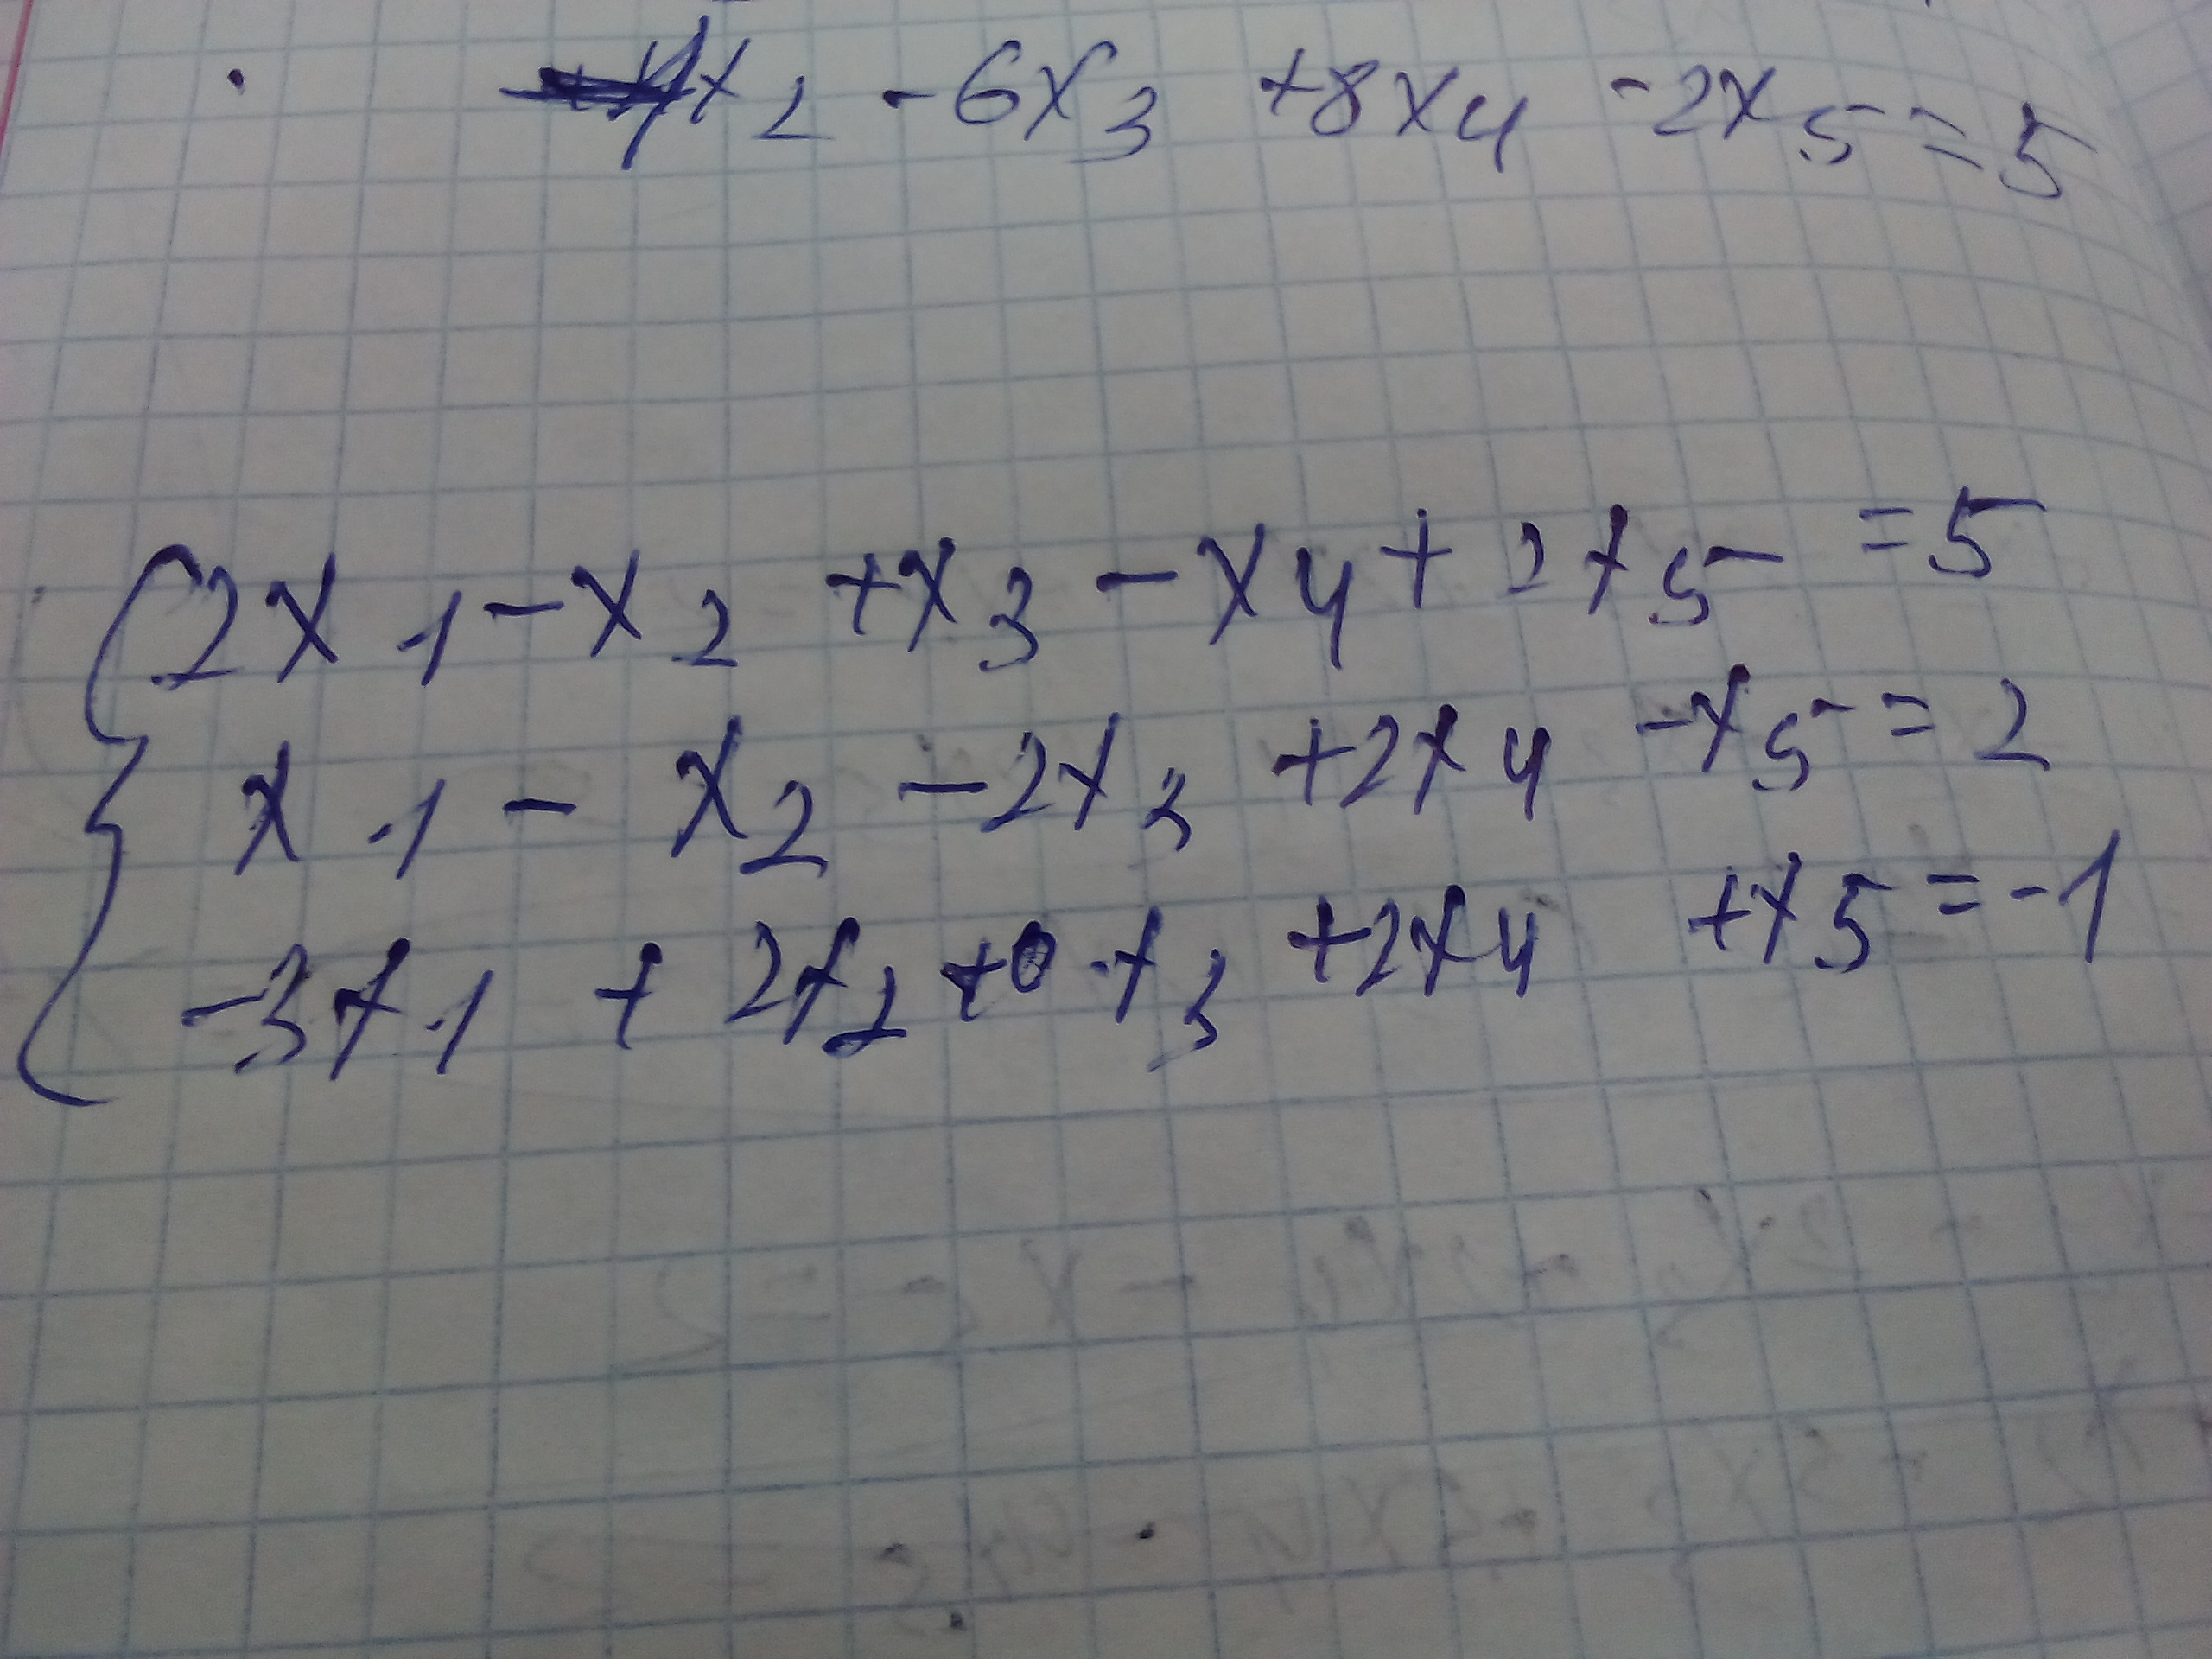 x2 - 6x3 + 8x4 - 2x5 = 5
2x1 - x2 + x3 - x4 + 2x5 = 5
x1 - x2 - 2x3 + 2x4 - x5 = 2
-3x1 + 2x2 + 0·x3 + 2x4 + x5 = -1